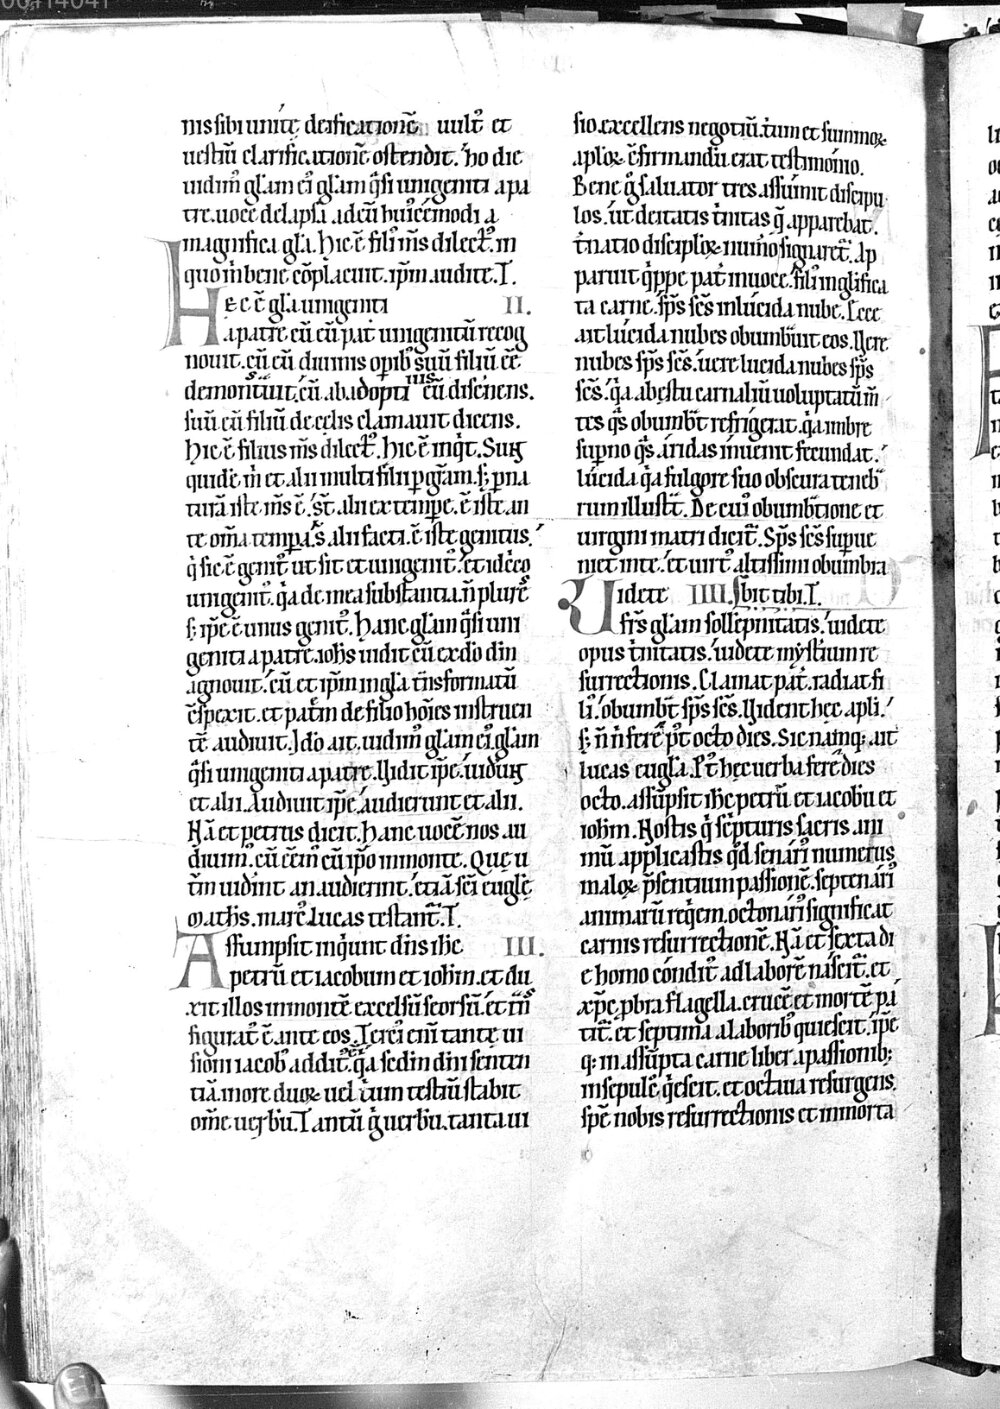 nis sibi unitę deificationē uult᷒ et
uestrū clarificationē ostendit. Iho dic
uidim᷒ gl̄am ei᷒ gl̄am q̄si unigeniti a pa
tre. uoce delapsa ad eū hui᷒cēmodi a
magnifica gl̄a. Hic ē fili᷒ m̄s dilect᷒. in
quo m̄ bene cōplacuit. ip̄m audite. T.
Hec ē gl̄a unigeniti II.
a patre. cū eū pat̄ unigenitū recog
nouit. cū eū diuinis opib᷒ suū filiū eē
demonst̄uit. cū ab adoptiuis eū discernens.
suū eū filiū de celis clamauit dicens.
Hic ē filius m̄s dilect᷒. Hic ē inq̄t. Sunt
quidē m̄ et alii multi filii p gr̄am. s; p na
turā iste m̄s ē. St̄ alii ex tempe. ē iste an
te om̄a tempa. St̄ alii facti. ē iste genitus.
q̄ sic ē genit᷒ ut sit et unigenit᷒. et idcō
unigenit᷒. q̄a de mea substantia n̄ plures
s; ip̄e ē unus genit᷒. Hanc gl̄am q̄si uni
geniti a patre. ioh̄s uidit cū ex do din
agnouit. cū et ip̄m in gl̄a t̄nsformatū
c̄spexit. et pat̄m de filio hoīes instruen
tē audiuit. Ido ait. uidim᷒ gl̄am ei᷒ gl̄am
q̄si unigeniti a patre. Vidit ip̄e. uidert
et alii. Audiuit ip̄e. audierunt et alii.
Nā et petrus dicit. Hanc uocē nos au
diuim᷒. cū eēm᷒ cū ip̄o in monte. Quę u
t̄m uidint an audierint. etiā sc̄i eugl̄ę
math̄s. marc᷒. lucas testant᷒. T.
Assumpsit inquiunt dn̄s ih̄c III.
petrū et iacobum et ioh̄m. et du
xit illos in montē excelsū seorsū. et t̄ns
figurat᷒ ē ante eos. Terci᷒ eni tantę ui
sioni iacob᷒ addit᷒. q̄a sedin din senten
tiā. more duoꝝ uel t̄ium testiū stabit
om̄e uerbū. Tantū g̊ uerbū. tanta ui
sio. excellens negotiū. t̄um et summoꝝ
apl̄oꝝ c̄firmandū erat testimonio.
Bene g̊ saluator tres assumit discipu
los. ut deitatis t̄nitas q̄ apparebat.
t̄natio discip̄loꝝ num̄o signaret᷒. Ap
paruit q̄ppe pat̄ in uoce. fili᷒ in gl̄ifica
ta carne. sp̄s sc̄s in lucida nube. Ecce
ait lucida nubes obumb̄uit eos. Vere
nubes sp̄s sc̄s. uere lucida nubes sp̄s
sc̄s. q̄a ab estu carnaliū uoluptatū m̄
tes q̄s obumb̄t refrigerat. q̄a imbre
supno q̄s aridas inuenit fecundat.
lucida q̄a fulgore suo obscura teneb̄
rum illust̄t. De cui᷒ obumb̄tione et
uirgini matri dicit᷒. Sp̄s sc̄s supue
niet in te. et uirt᷒ altissimi obumbra
Videte IIII. bit tibi. T.
fr̄s gl̄am sollepnitatis. uidete
opus t̄nitatis. uidete mysterium re
surrectionis. Clamat pat̄. radiat fi
li᷒. obumb̄t sp̄s sc̄s. Vident hec apl̄i.
s; n̄ n̄ ferē p᷒t octo dies. Sic namq; ait
lucas eugl̄a. P᷒t hec uerba ferē dies
octo. assūpsit ih̄c petrū et iacobū et
ioh̄m. Nostis q̄ sc̄pturis sacris ani
mū applicastis q̄d senari᷒ numerus
maloꝝ p̄sentium passionē. septenari᷒
animarū req̄em. octonari᷒ significat
carnis resurrectionē. Nā et sexta di
e homo condit᷒ ad laborē nascit᷒. et
xp̄c. pbra flagella. crucē. et mortē pa
tit᷒. et septima a laborib᷒ quiescit. ip̄e
q; in assūpta carne liber a passionib;
in sepulc̄ q̄escit. et octaua resurgens.
spē nobis resurrectionis et inmorta